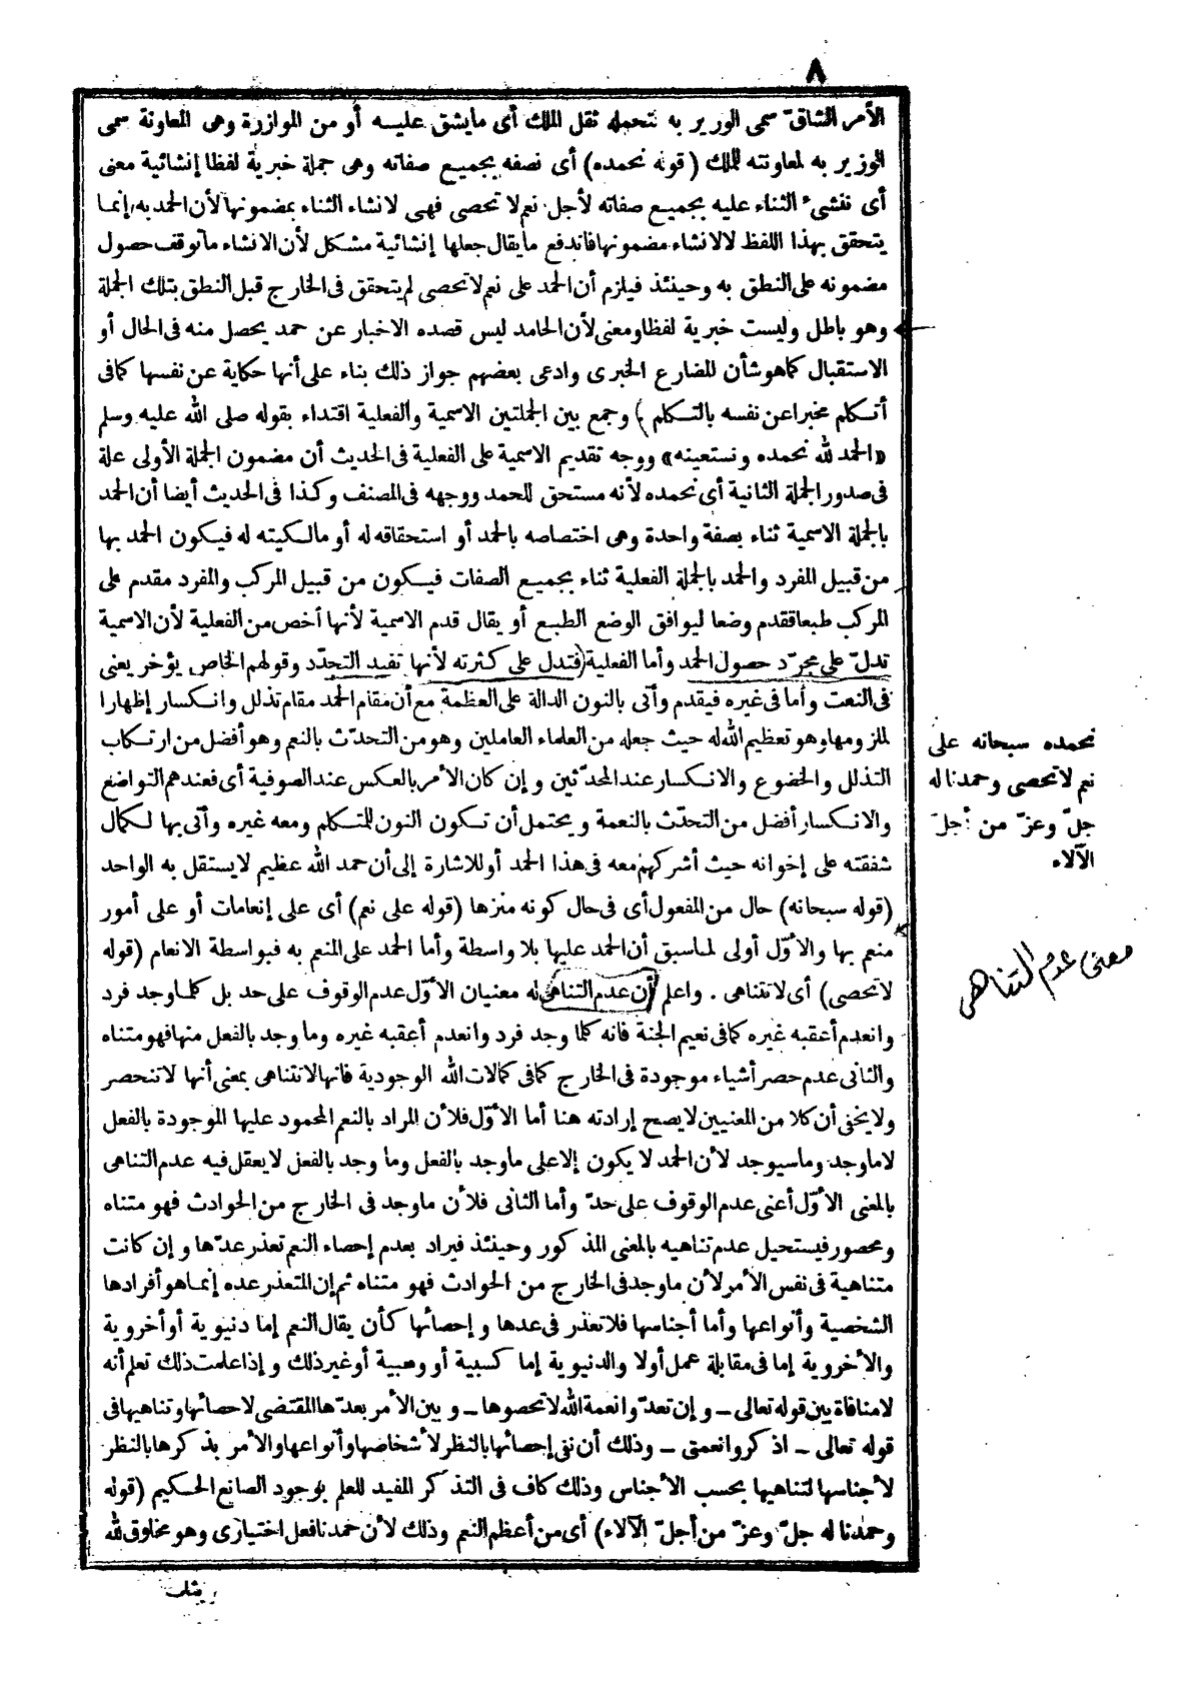 ٨
الأمر الشاق سمى الوزير به لتحمله ثقل الملك أى مايشق عليــه أو من الموازرة وهى المعاونة سمى
الوزير به لمعاونته للملك (قوله نحمده) أى نصفه بجميع صفاته وهى جملة خبرية لفظا إنشائية معنى
أى ننشىء الثناء عليه بجميع صفاته لأجل نعم لا تحصى فهى لانشاء الثناء بمضمونها لأن الحمد به إنما
يتحقق بهذا اللفظ لالانشاء مضمونها فاندفع ما يقال جعلها إنشائية مشكل لأن الانشاء ماتوقف حصول
مضمونه على النطق به وحينئذ فيلزم أن الحمد على نعم لاتحصى لم يتحقق فى الخارج قبل النطق بتلك الجملة
وهو باطل وليست خبرية لفظا ومعنى لأن الحامد ليس قصده الاخبار عن حمد يحصل منه فى الحال أو
الاستقبال كماهوشأن المضارع الخبرى وادعى بعضهم جواز ذلك بناء على أنها حكاية عن نفسها كمافى
أتكلم مخبرا عن نفسه بالتكلم) وجمع بين الجملتين الاسمية والفعلية اقتداء بقوله صلى الله عليه وسلم
«الحمد لله نحمده ونستعينه» ووجه تقديم الاسمية على الفعلية فى الحديث أن مضمون الجملة الأولى علة
فى صدور الجملة الثانية أى نحمده لأنه مستحق للحمد ووجهه فى المصنف وكذا فى الحديث أيضا أن الحمد
بالجملة الاسمية ثناء بصفة واحدة وهى اختصاصه بالحمد أو استحقاقه له أو مالكيته له فيكون الحمد بها
من قبيل المفرد والحمد بالجملة الفعلية ثناء بجميع الصفات فيكون من قبيل المركب والمفرد مقدم على
المركب طبعا فقدم وضعا ليوافق الوضع الطبع أو يقال قدم الاسمية لأنها أخص من الفعلية لأن الاسمية
تدلّ على مجرّد حصول الحمد وأما الفعلية (فتدل على كثرته لأنها تفيد التجدّد وقولهم الخاص يؤخر يعنى
فى النعت وأما فى غيره فيقدم وأتى بالنون الدالة على العظمة مع أن مقام الحمد مقام تذلل وانكسار إظهارا
لملزومها وهو تعظيم الله له حيث جعله من العلماء العاملين وهو من التحدّث بالنعم وهو أفضل من ارتكاب
التذلل والخضوع والانكسار عند المحدّثين وإن كان الأمر بالعكس عند الصوفية أى فعندهم التواضع
والانكسار أفضل من التحدّث بالنعمة ويحتمل أن تكون النون للمتكلم ومعه غيره وأتى بها لكمال
شفقته على إخوانه حيث أشركهم معه فى هذا الحمد أو للاشارة إلى أن حمد الله عظيم لايستقل به الواحد
(قوله سبحانه) حال من المفعول أى فى حال كونه منزها (قوله على نعم) أى على إنعامات أو على أمور
منعم بها والأوّل أولى لماسبق أن الحمد عليها بلا واسطة وأما الحمد على المنعم به فبواسطة الانعام (قوله
لاتحصى) أى لاتتناهى . واعلم أن عدم التناهى له معنيان الأوّل عدم الوقوف على حد بل كلما وجد فرد
وانعدم أعقبه غيره كمافى نعيم الجنة فانه كلما وجد فرد وانعدم أعقبه غيره وما وجد بالفعل منها فهو متناه
والثانى عدم حصر أشياء موجودة فى الخارج كمافى كمالات الله الوجودية فانها لاتتناهى بمعنى أنها لاتنحصر
ولايخفى أن كلا من المعنيين لايصح إرادته هنا أما الأوّل فلأن المراد بالنعم المحمود عليها الموجودة بالفعل
لاماوجد وماسيوجد لأن الحمد لا يكون إلاعلى ماوجد بالفعل وما وجد بالفعل لايعقل فيه عدم التناهى
بالمعنى الأوّل أعنى عدم الوقوف على حدّ وأما الثانى فلأن ماوجد فى الخارج من الحوادث فهو متناه
ومحصور فيستحيل عدم تناهيه بالمعنى المذكور وحينئذ فيراد بعدم إحصاء النعم تعذر عدّها وإن كانت
متناهية فى نفس الأمر لأن ماوجد فى الخارج من الحوادث فهو متناه ثم إن المتعذر عده إنماهو أفرادها
الشخصية وأنواعها وأما أجناسها فلا تعذر فى عدها وإحصائها كأن يقال النعم إما دنيوية أو أخروية
والأخروية إما فى مقابلة عمل أولا والدنيوية إما كسبية أو وهبية أو غير ذلك وإذا علمت ذلك تعلم أنه
لامنافاة بين قوله تعالى ــ وإن تعدّوا نعمة الله لاتحصوها ــ وبين الأمر بعدّها المقتضى لاحصائها وتناهيها فى
قوله تعالى ــ اذكروا نعمتى ــ وذلك أن نفى إحصائها بالنظر لأشخاصها وأنواعها والأمر بذكرها بالنظر
لأجناسها لتناهيها بحسب الأجناس وذلك كاف فى التذكر المفيد للعلم بوجود الصانع الحكيم (قوله
وحمدنا له جلّ وعزّ من أجلّ الآلاء) أى من أعظم النعم وذلك لأن حمدنا فعل اختيارى وهو مخلوق لله
يثاب
نحمده سبحانه على
نعم لاتحصى وحمدنا له
جلّ وعزّ من أجلّ
الآلاء
معنى عدم التناهى